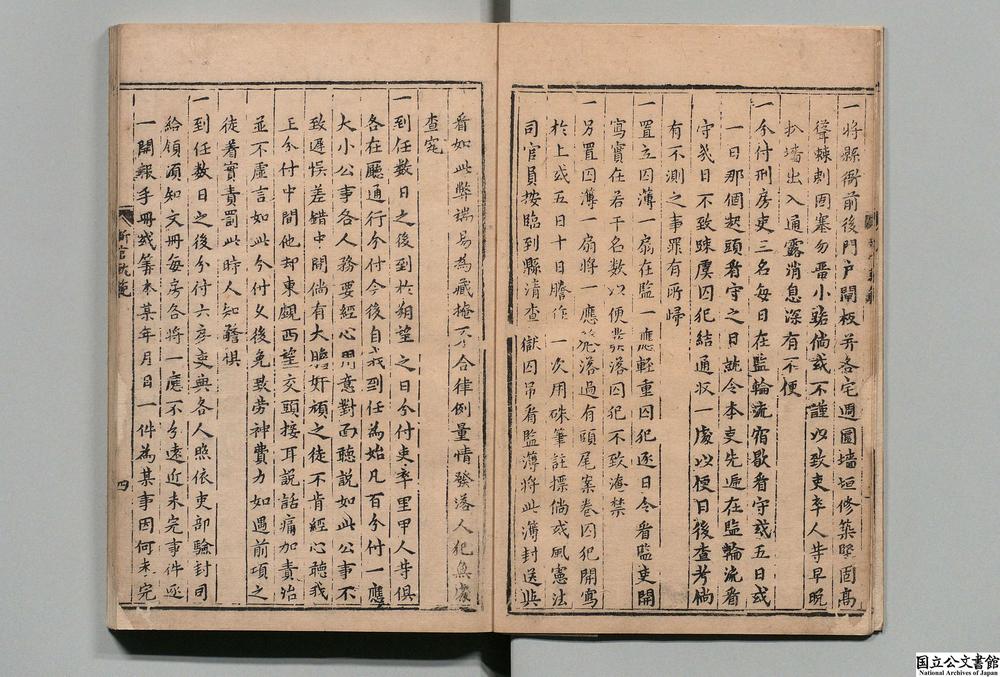 一將縣衙前後門戸閘板并各宅週圍墻垣修築堅固髙
聳棘刺固塞勿畱小路倘或不謹以致吏卒人等早晩
扒墻出入通露消息深有不便
一今付刑房吏三名每日在監輪流宿歇看守或五日或
一日那個起頭看守之日就令本吏先逓在監輪流看
守幾日不致踈虞囚犯結通状一處以便日後查考倘
有不測之事罪有所歸
一置立囚薄一扇在監一應軽重囚犯逐日令看監吏開
寫實在若干名數以便發落囚犯不致淹禁
一另置囚薄一扇將一應發落過有頭尾案卷囚犯開寫
於上或五日十日謄作一次用硃筆註摽倘或風憲法
司官員按臨到縣清查獄囚吊看監簿將此簿封送與
看如此弊端易為蔵掩不合律例量情發落人犯免慮
查寃
一到任數日之後到於朔望之日分付吏卒里甲人等俱
各在廳通行分付今後自我到任為始凡百分付一應
大小公事各人務要經心用意對面聽說如此公事不
致遲悞差錯中間倘有大膽奸頑之徒不肯經心聽我
上分付中間他却東覷西望交頭接耳說話痛加責治
並不虛言如此今付久後免致劳神費力如遇前項之
徒着實責罰此時人知警惧
一到任數日之後分付六房吏典各人照依吏部驗封司
給領須知文冊每房各將一應不分遠近未完事件逐
一開報手冊或籌本某年月日一件為某事因何未完
新官軌範
四
国立公文書館
National Archives of Japan